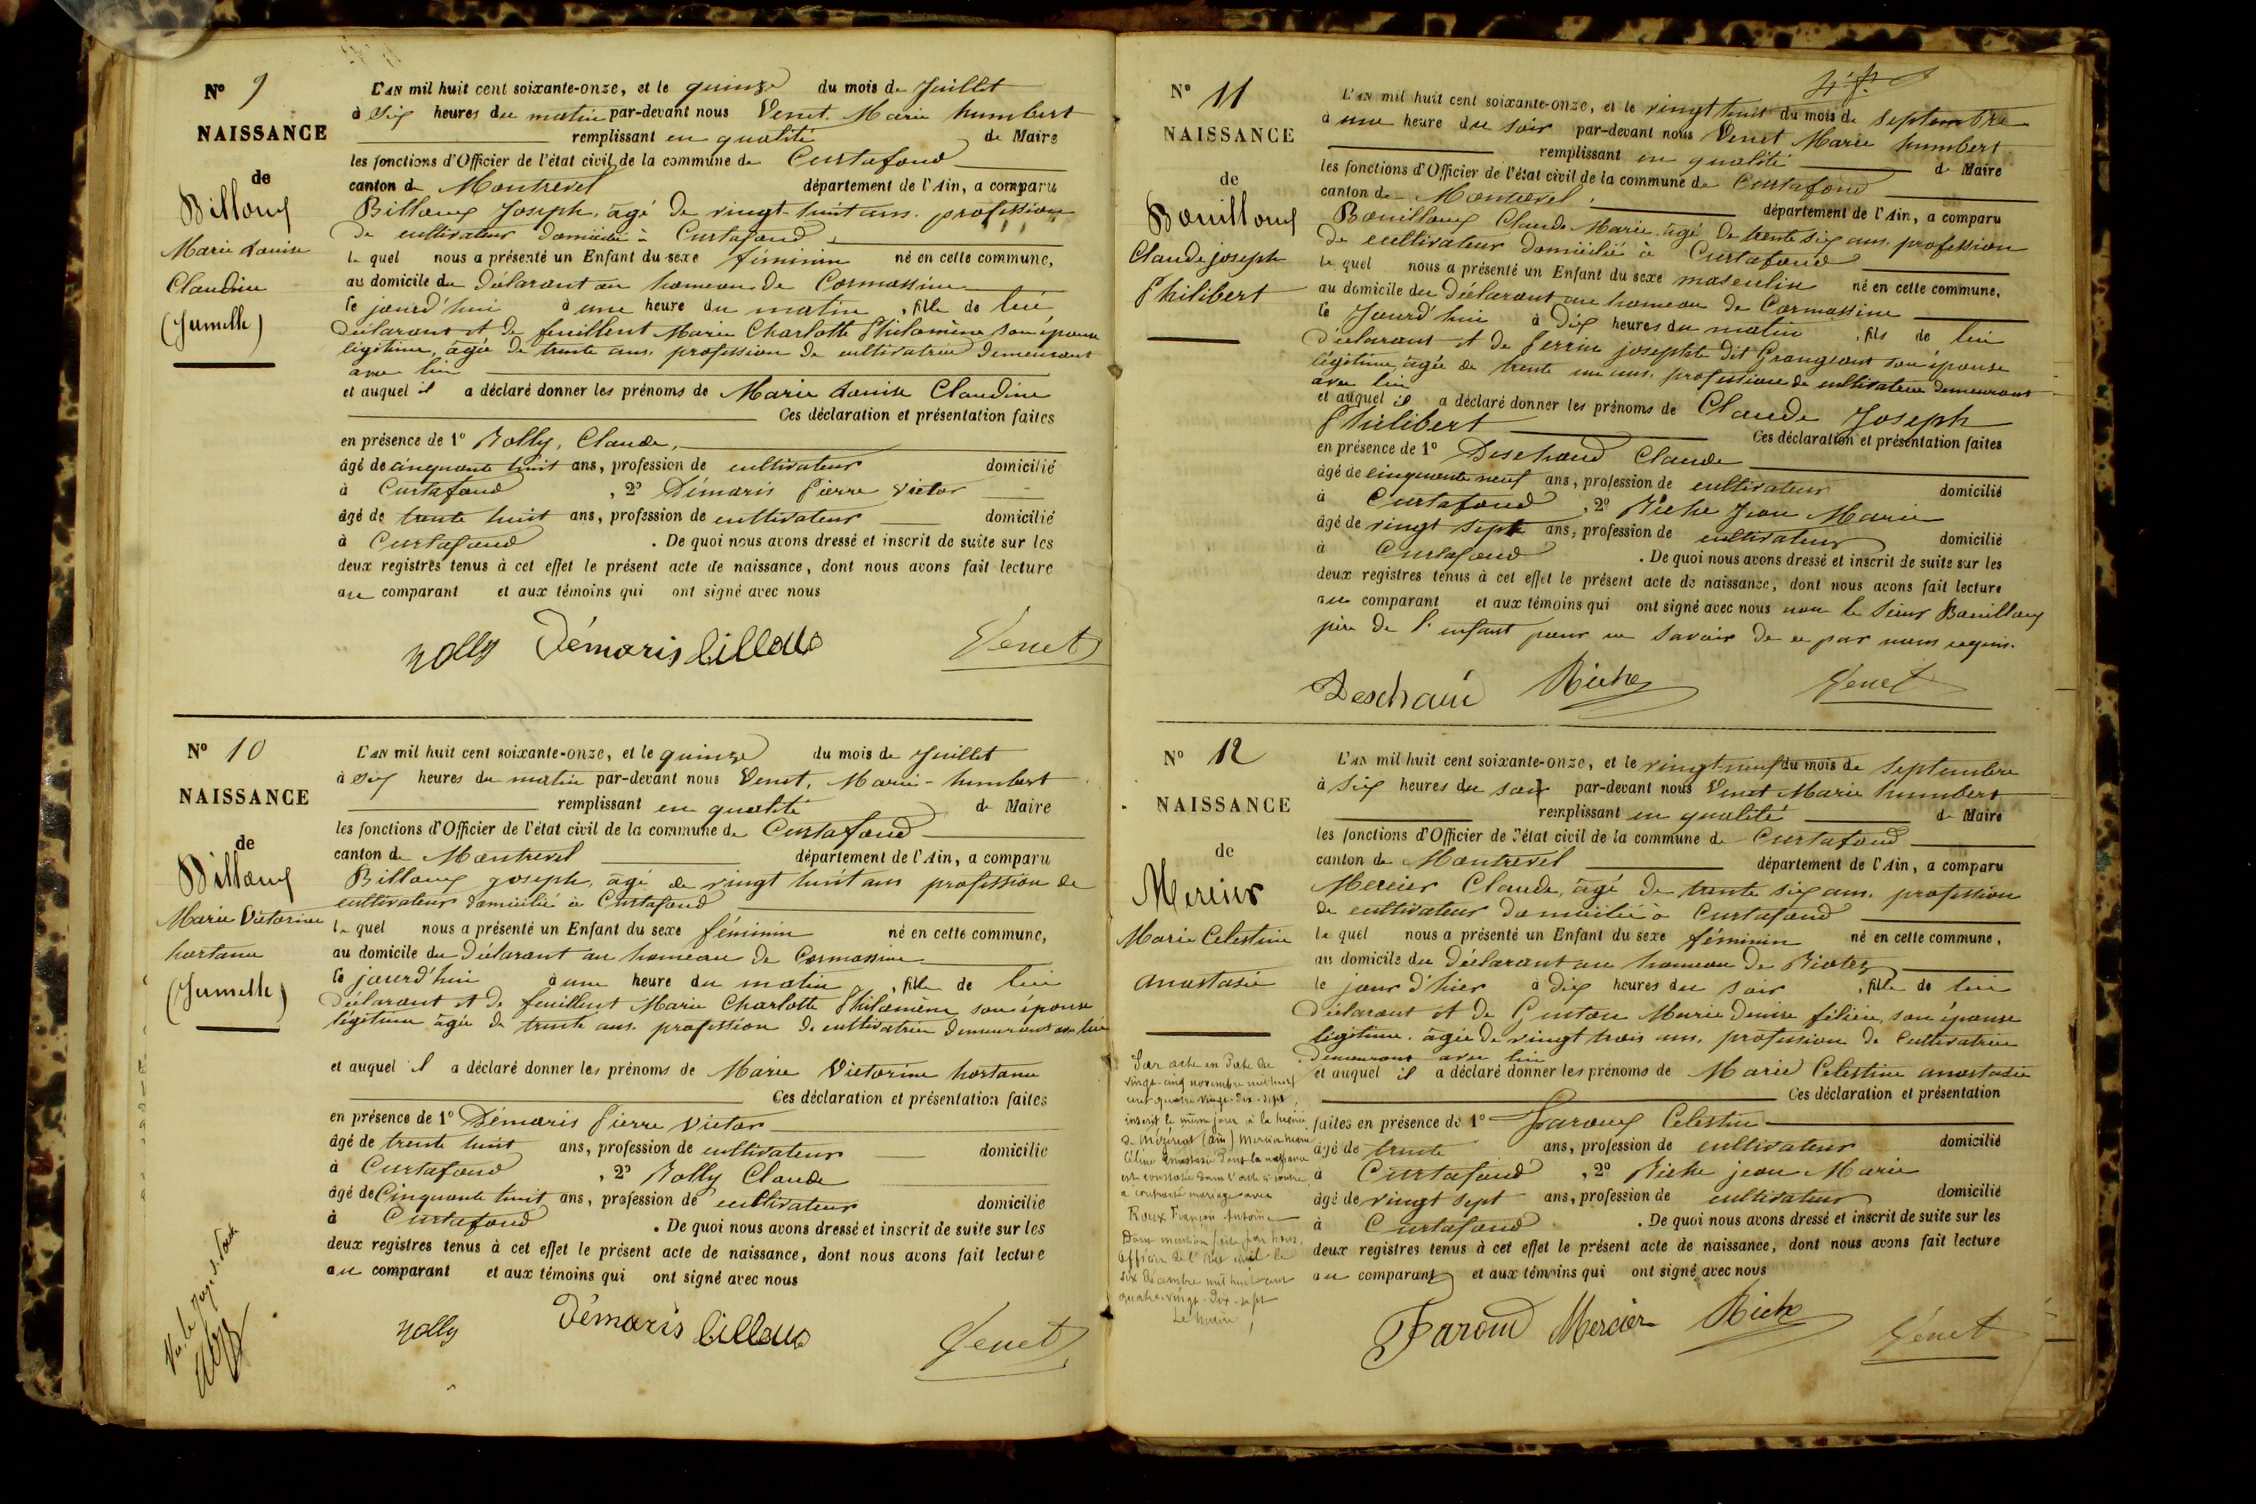 Nº 9
NAISSANCE
de
Billoux
Marie Louise
Claudine
(Jumelle)
L'AN mil huit cent soixante-onze, et le quinze du mois de Juillet
à Six heures du matin par-devant nous Venet, Marie humbert
remplissant en qualité de Maire
les fonctions d'Officier de l'état civil de la commune de Curtafond
canton de Montrevel département de l'Ain, a comparu
Billoux Joseph, âgé de vingt-huit ans. profession
de cultivateur domicilié à Curtafond
le quel nous a présenté un Enfant du sexe féminin né en cette commune,
au domicile du Déclarant au hameau de Cormassine
le jourd'hui à une heure du matin, fille de lui
Déclarant et de feuillent Marie Charlotte Philomène son épouse
légitime, âgée de trente ans. profession de cultivatrice demeurant
avec lui
et auquel il a déclaré donner les prénoms de Marie Louise Claudine
Ces déclaration et présentation faites
en présence de 1º Rolly, Claude,
âgé de cinquante huit ans, profession de cultivateur domicilié
à Curtafond, 2º Démaris Pierre Victor
âgé de trente huit ans, profession de cultivateur domicilié
à Curtafond. De quoi nous avons dressé et inscrit de suite sur les
deux registres tenus à cet effet le présent acte de naissance, dont nous avons fait lecture
au comparant et aux témoins qui ont signé avec nous
Rolly Démaris billoux Venet
Nº 10
NAISSANCE
de
Billoux
Marie Victorine
hortanse
(Jumelle)
L'AN mil huit cent soixante-onze, et le quinze du mois de Juillet
à Six heures du matin par-devant nous Venet, Marie-humbert
remplissant en qualité de Maire
les fonctions d'Officier de l'état civil de la commune de Curtafond
canton de Montrevel département de l'Ain, a comparu
Billoux Joseph, âgé de vingt huit ans profession de
cultivateur domicilié à Curtafond
le quel nous a présenté un Enfant du sexe féminin né en cette commune,
au domicile du Déclarant au hameau de Cormassine
le jourd'hui à une heure du matin, fille de lui
Déclarant et de feuillent Marie Charlotte Philomène son épouse
légitime âgée de trente ans. profession de cultivatrice demeurant avec lui
et auquel il a déclaré donner les prénoms de Marie Victorine hortanse
Ces déclaration et présentation faites
en présence de 1º Démaris Pierre Victor
âgé de trente huit ans, profession de cultivateur domicilié
à Curtafond, 2º Rolly Claude
âgé de Cinquante huit ans, profession de cultivateur domicilié
à Curtafond. De quoi nous avons dressé et inscrit de suite sur les
deux registres tenus à cet effet le présent acte de naissance, dont nous avons fait lecture
au comparant et aux témoins qui ont signé avec nous
Rolly Démaris billoux Venet
Vu. le Juge
Nº 11
NAISSANCE
de
Bouilloux
Claude joseph
Philibert
L'AN mil huit cent soixante-onze, et le vingt huit du mois de Septembre
à une heure du soir par-devant nous Venet Marie humbert
remplissant en qualité de Maire
les fonctions d'Officier de l'état civil de la commune de Curtafond
canton de Montrevel département de l'Ain, a comparu
Bouilloux Claude Marie, âgé de trente six ans. profession
de cultivateur domicilié à Curtafond
le quel nous a présenté un Enfant du sexe masculin né en cette commune,
au domicile du Déclarant au hameau de Cormassine
le Jourd'hui à Dix heures du matin, fils de lui
Déclarant et de Perrin josephte dit Grangeant son épouse
légitime, âgée de trente un ans. profession de cultivatrice demeurant
avec lui
et auquel il a déclaré donner les prénoms de Claude Joseph
Philibert Ces déclaration et présentation faites
en présence de 1º Deschand Claude
âgé de cinquante neuf ans, profession de cultivateur domicilié
à Curtafond, 2º Riche Jean Marie
âgé de vingt sept ans, profession de cultivateur domicilié
à Curtafond. De quoi nous avons dressé et inscrit de suite sur les
deux registres tenus à cet effet le présent acte de naissance, dont nous avons fait lecture
au comparant et aux témoins qui ont signé avec nous non le Sieur Bouilloux
père de l'enfant pour ne savoir de ce par nous requis.
Deschand Riche Venet
Nº 12
NAISSANCE
de
Mercier
Marie Celestine
anastasie
Par acte en Date du
vingt-cinq novembre mil huit
cent quatre vingt-dix-sept,
inscrit le même jour à la mairie
de Mézériat (Ain) Mercier Marie
Céline Anastasie dont la naissance
est constatée dans l'acte ci contre,
a contracté mariage avec
Roux François Antoine
Dont mention faite par nous,
officier de l'état civil le
six Décembre mil huit cent
quatre-vingt-dix-sept
Le Maire
L'AN mil huit cent soixante-onze, et le vingt neuf du mois de Septembre
à Six heures du soir par-devant nous Venet Marie humbert
remplissant en qualité de Maire
les fonctions d'Officier de l'état civil de la commune de Curtafond
canton de Montrevel département de l'Ain, a comparu
Mercier Claude, âgé de trente six ans. profession
de cultivateur domicilié à Curtafond
le quel nous a présenté un Enfant du sexe féminin né en cette commune,
au domicile du Déclarant au hameau de Biolez
le jour d'hier à dix heures du soir, fille de lui
Déclarant et de Guiton Marie denise félicie, son épouse
légitime. âgée de vingt trois ans, profession de Cultivatrice
demeurant avec lui
et auquel il a déclaré donner les prénoms de Marie Celestine anastasie
Ces déclaration et présentation
faites en présence de 1º Faroux Celestin
âgé de trente ans, profession de cultivateur domicilié
à Curtafond, 2º Riche jean Marie
âgé de vingt sept ans, profession de cultivateur domicilié
à Curtafond. De quoi nous avons dressé et inscrit de suite sur les
deux registres tenus à cet effet le présent acte de naissance, dont nous avons fait lecture
au comparant et aux témoins qui ont signé avec nous
Faroud Mercier Riche Venet